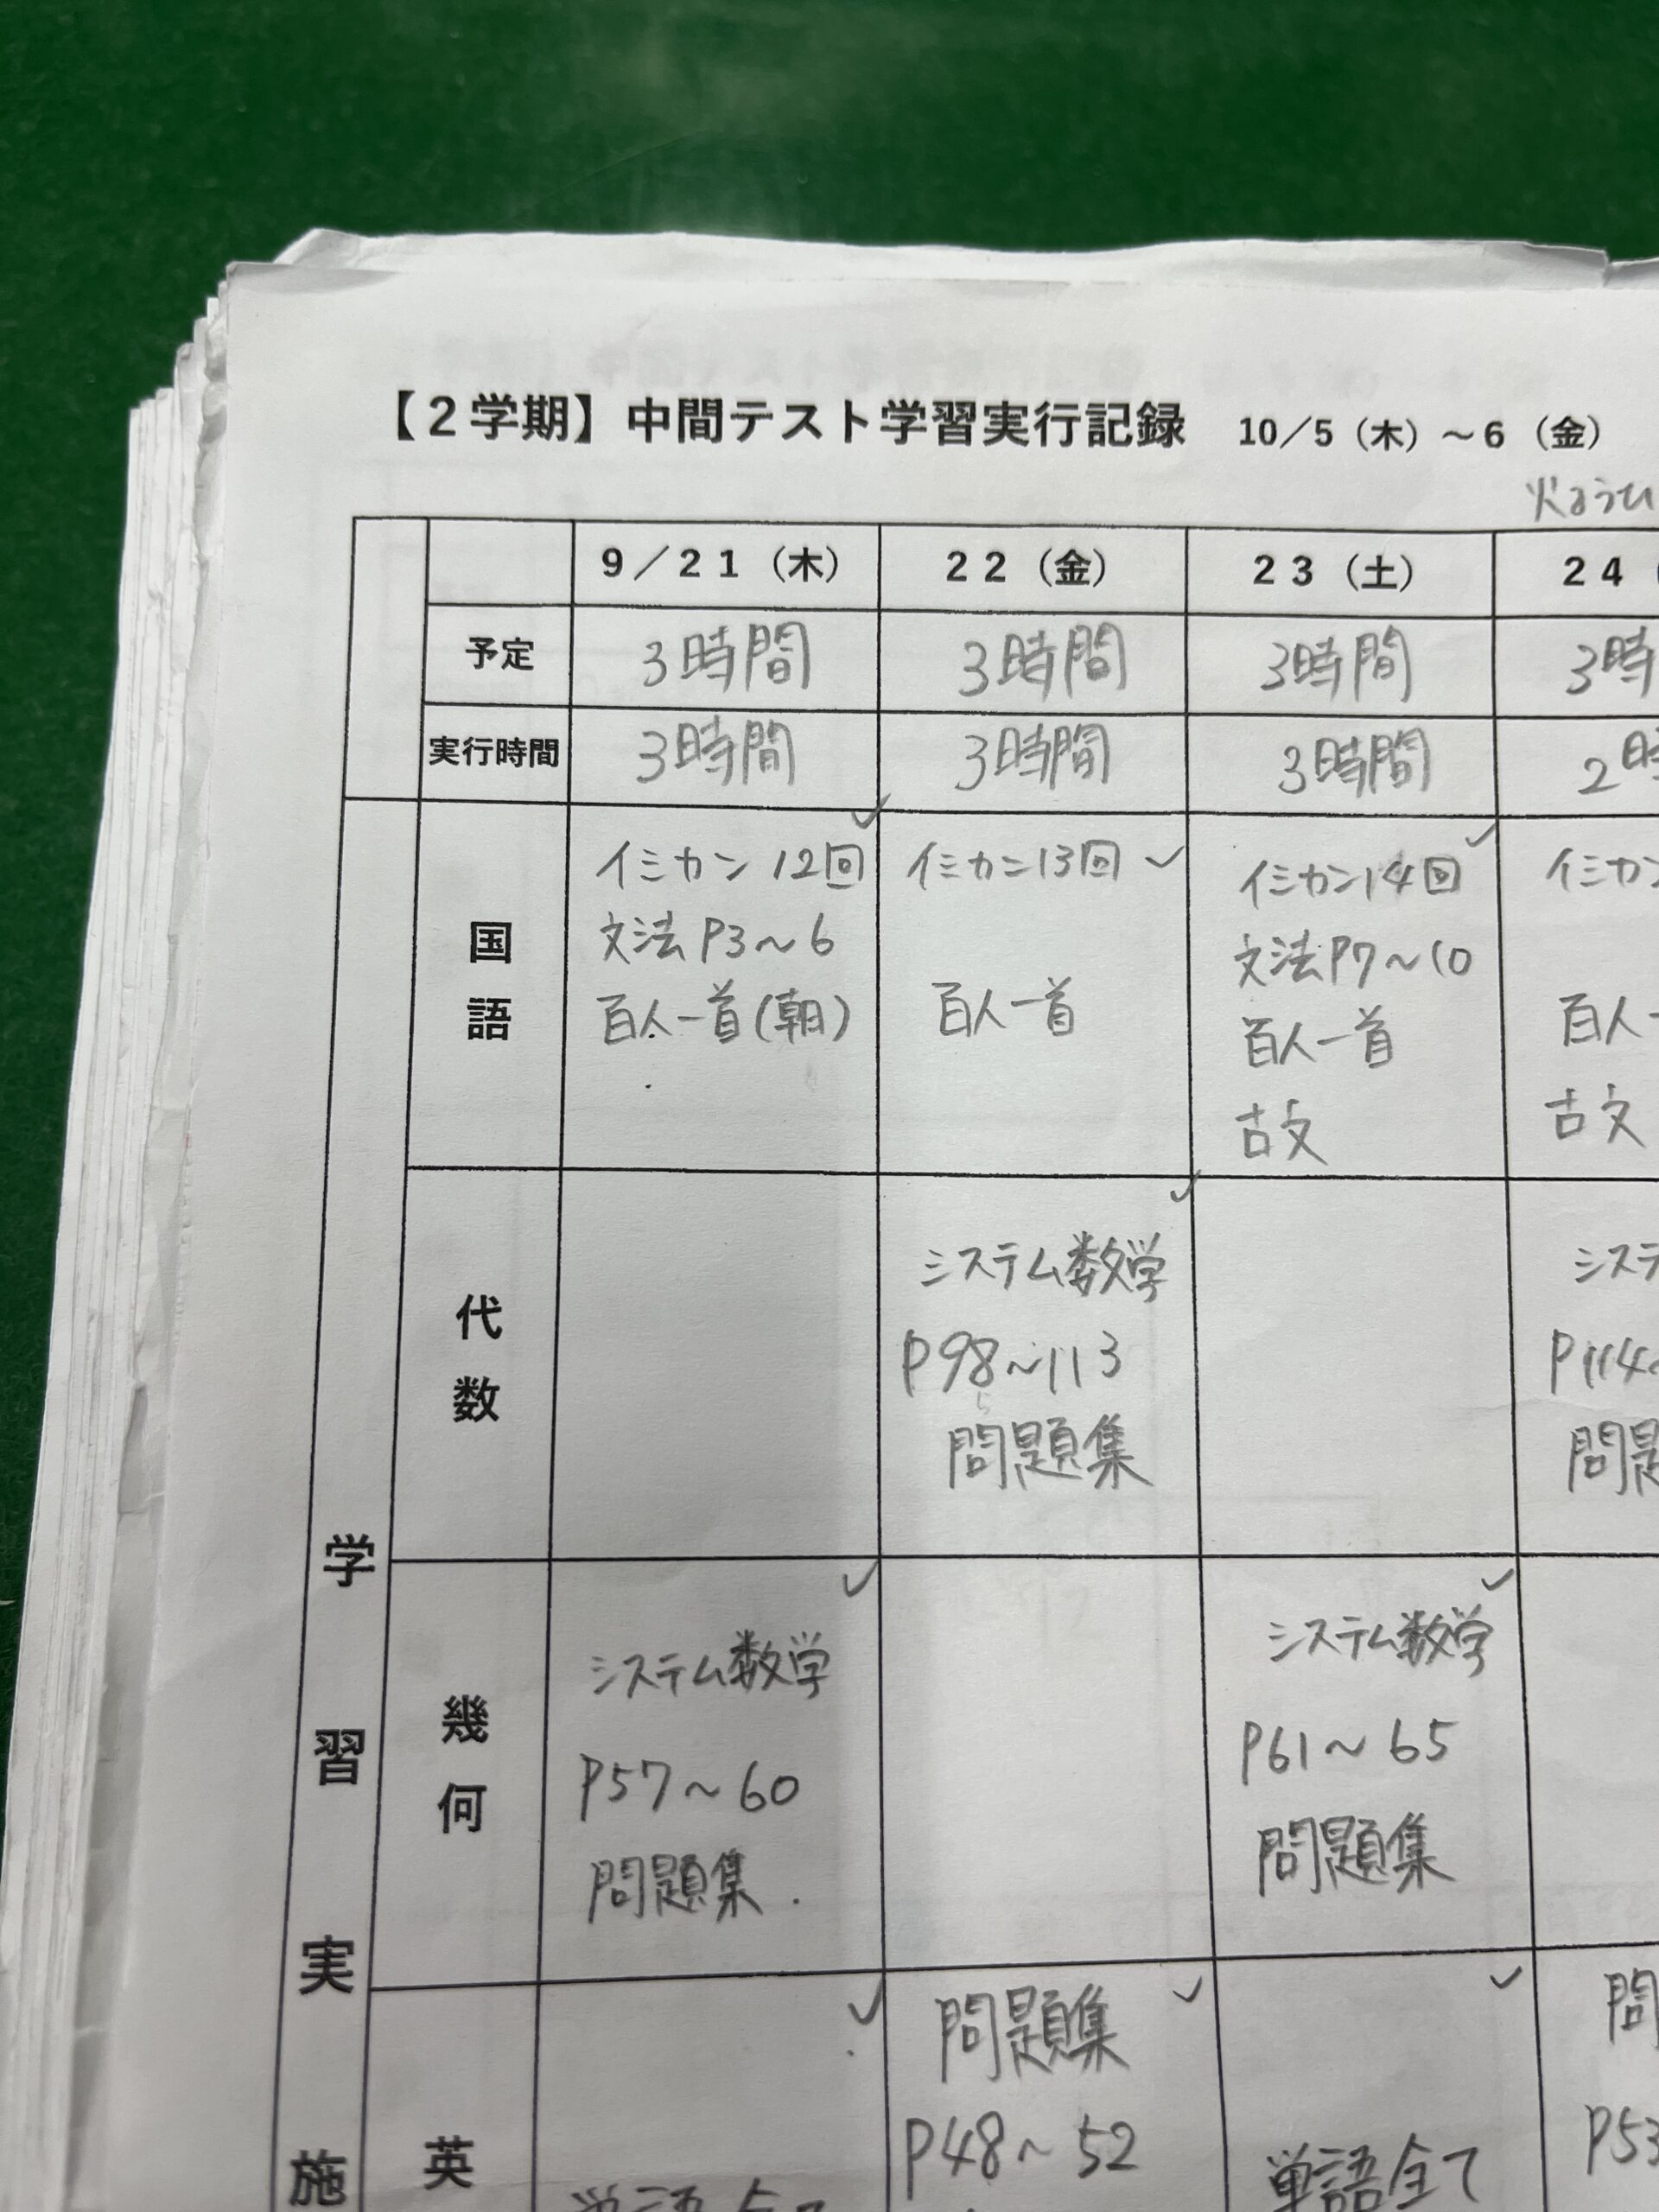 【２学期】中間テスト学習実行記録　10／5（木）～6（金）
9／21（木）　22（金）　23（土）　24
予定　3時間　3時間　3時間　3時
実行時間　3時間　3時間　3時間　2時
国語
イミカン 12回
文法 P3～6
百人一首(朝)
イミカン13回
百人一首
イミカン14回
文法P7～10
百人一首
古文
イミカン
百人一
古文
代数
システム数学
P98～113
問題集
システ
P114～
問題
幾何
システム数学
P57～60
問題集.
システム数学
P61～65
問題集
英
問題集
P48～52
単語全て
問
P53
学習実施